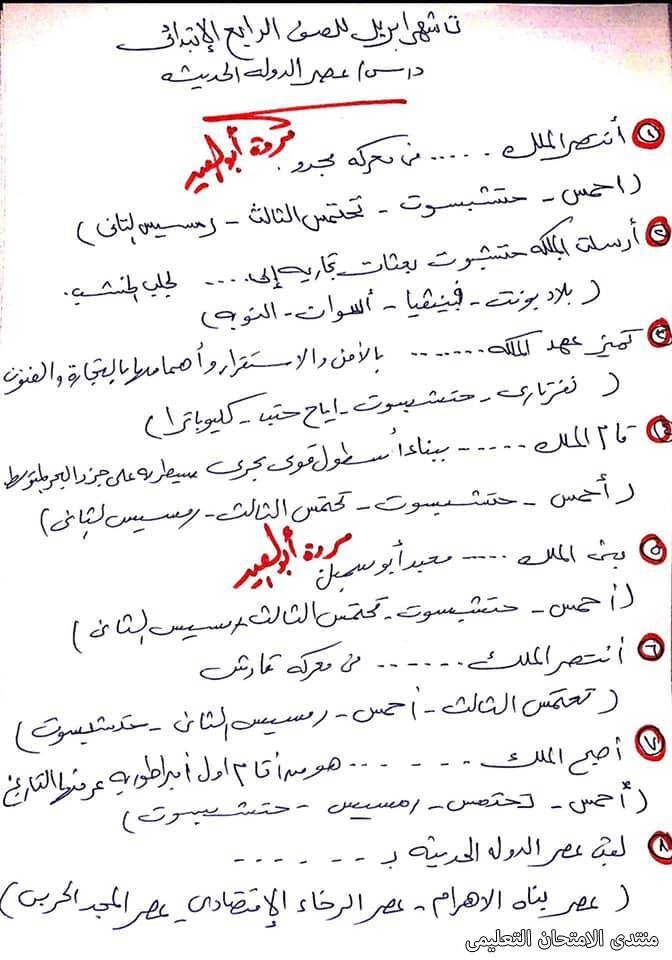 تاشهر ابريل للصف الرابع الابتدائى
درس/ عصر الدوله الحديثه
مروة أبو العيد
١ أنتصر الملك ..... فى معركه مجدو.
(احمس - حتشبسوت - تحتمس الثالث - رمسيس الثانى)
٢ أرسلت الملكه حتشبسوت بعثات تجاريه إلى .... لجلب الخشب.
(بلاد بونت - فينيقيا - أسوان - النوبه)
٣ تميز عهد الملكه ....... بالأمن والاستقرار وأهتمامها بالتجارة والفنون
(نفرتارى - حتشبسوت - اياح حتب - كليوباترا)
٤ قام الملك ...... ببناء أسطول قوى بحرى سيطر به على جزر البحر المتوسط
(أحمس - حتشبسوت - تحتمس الثالث - رمسيس الثانى)
٥ بنى الملك ..... معبد أبو سمبل
مروة أبو العيد
(أحمس - حتشبسوت - تحتمس الثالث - رمسيس الثانى)
٦ أنتصر الملك ....... فى معركه قادش
(تحتمس الثالث - أحمس - رمسيس الثانى - حتشبسوت)
٧ أصبح الملك ....... هو من أقام اول أمبراطوريه عرفها التاريخ
(أحمس - تحتمس - رمسيس - حتشبسوت)
٨ لقب عصر الدوله الحديثه بـ ------
(عصر بناه الاهرام - عصر الرخاء الإقتصادى - عصر المجد الحربى)
منتدى الامتحان التعليمى